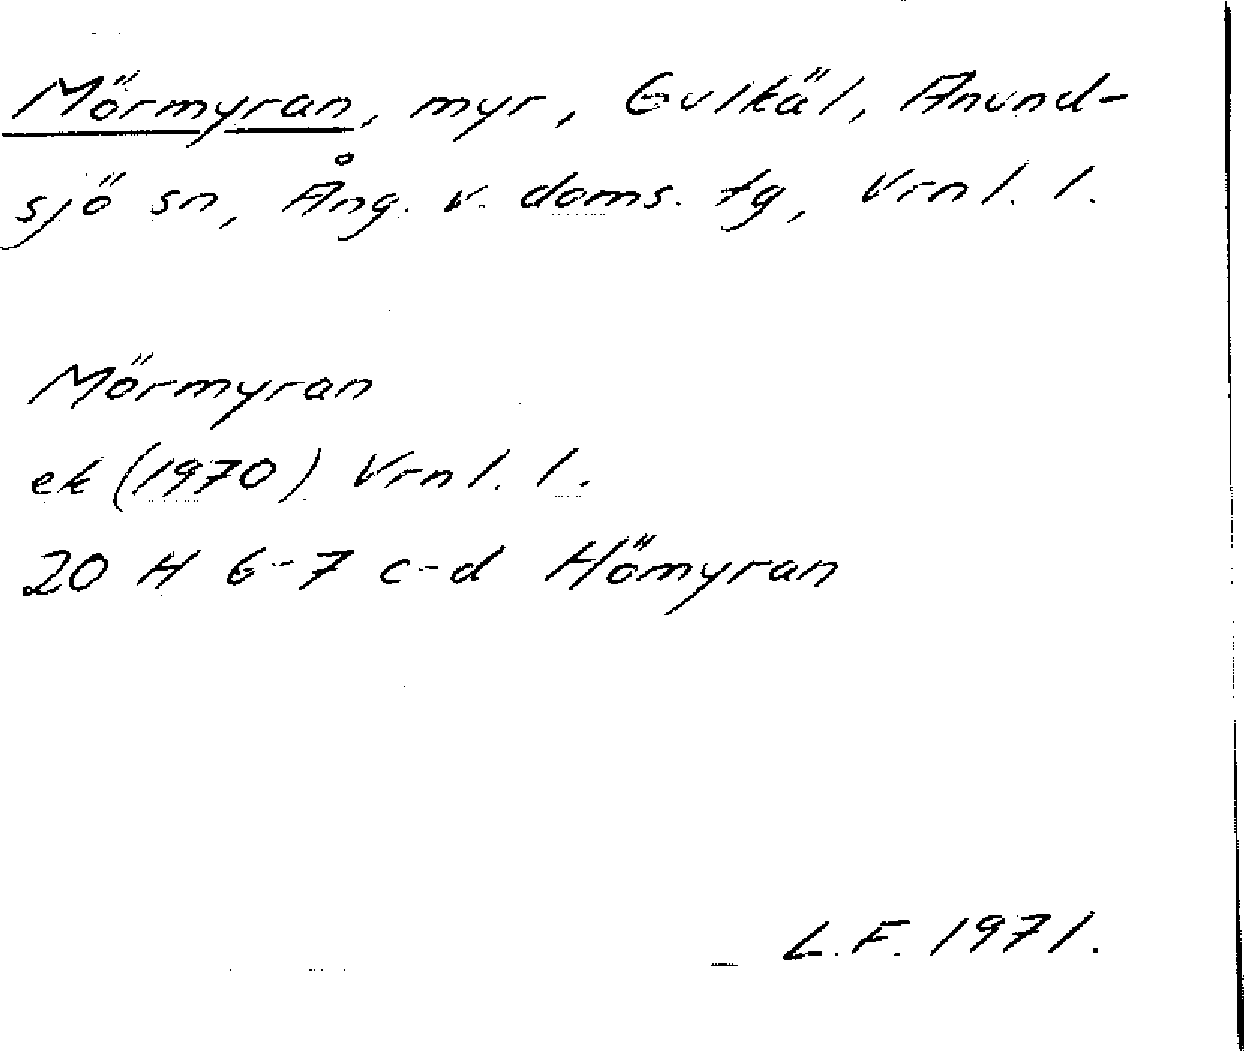 Mörmyran, myr, Gulkäl, Anund-
sjö sn, Ång. v. doms. tg, Vrnl. l.
Mörmyran
ek (1970) Vrnl. l.
20 H 6-7 c-d Hömyran
L.F. 1971.